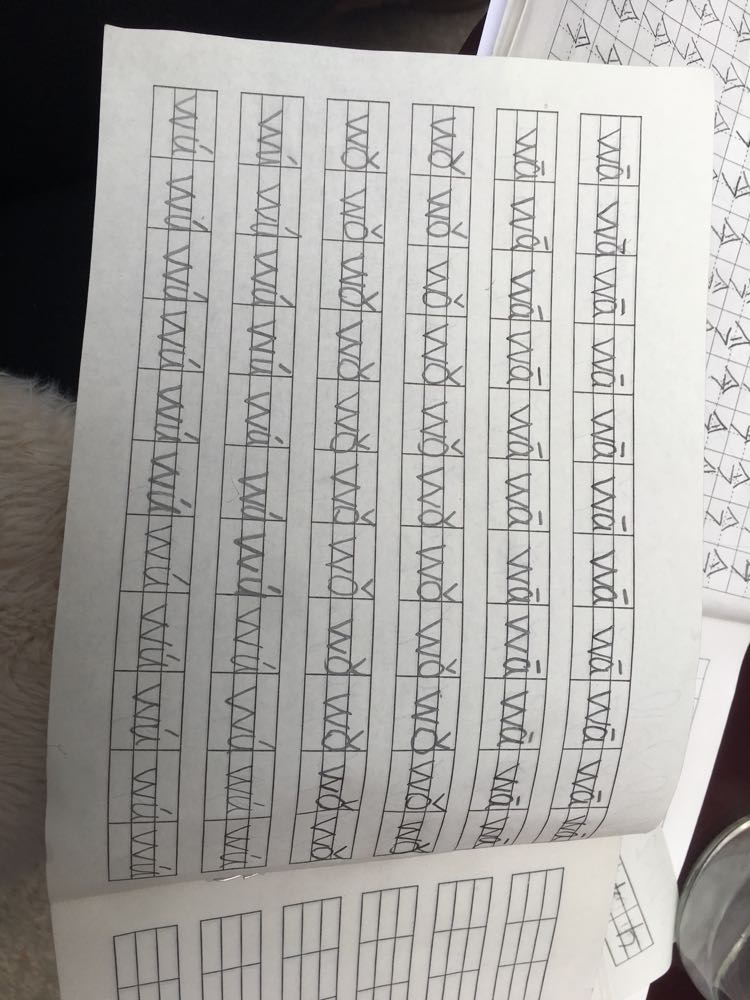 wā wā wā wā wā wā wā wā wā wā wā
wā wā wā wā wā wā wā wā wā wā wā
wǒ wǒ wǒ wǒ wǒ wǒ wǒ wǒ wǒ wǒ wǒ
wǒ wǒ wǒ wǒ wǒ wǒ wǒ wǒ wǒ wǒ wǒ
wú wú wú wú wú wú wú wú wú wú wú
wú wú wú wú wú wú wú wú wú wú wú